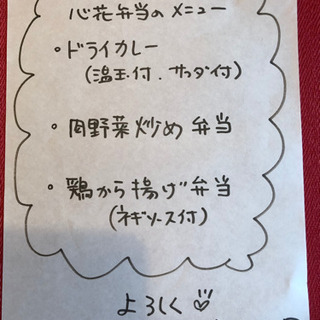 心花弁当のメニュー
・ドライカレー
(温玉付.サラダ付)
・肉野菜炒め弁当
・鶏から揚げ弁当
(ネギソース付)
よろしく♡